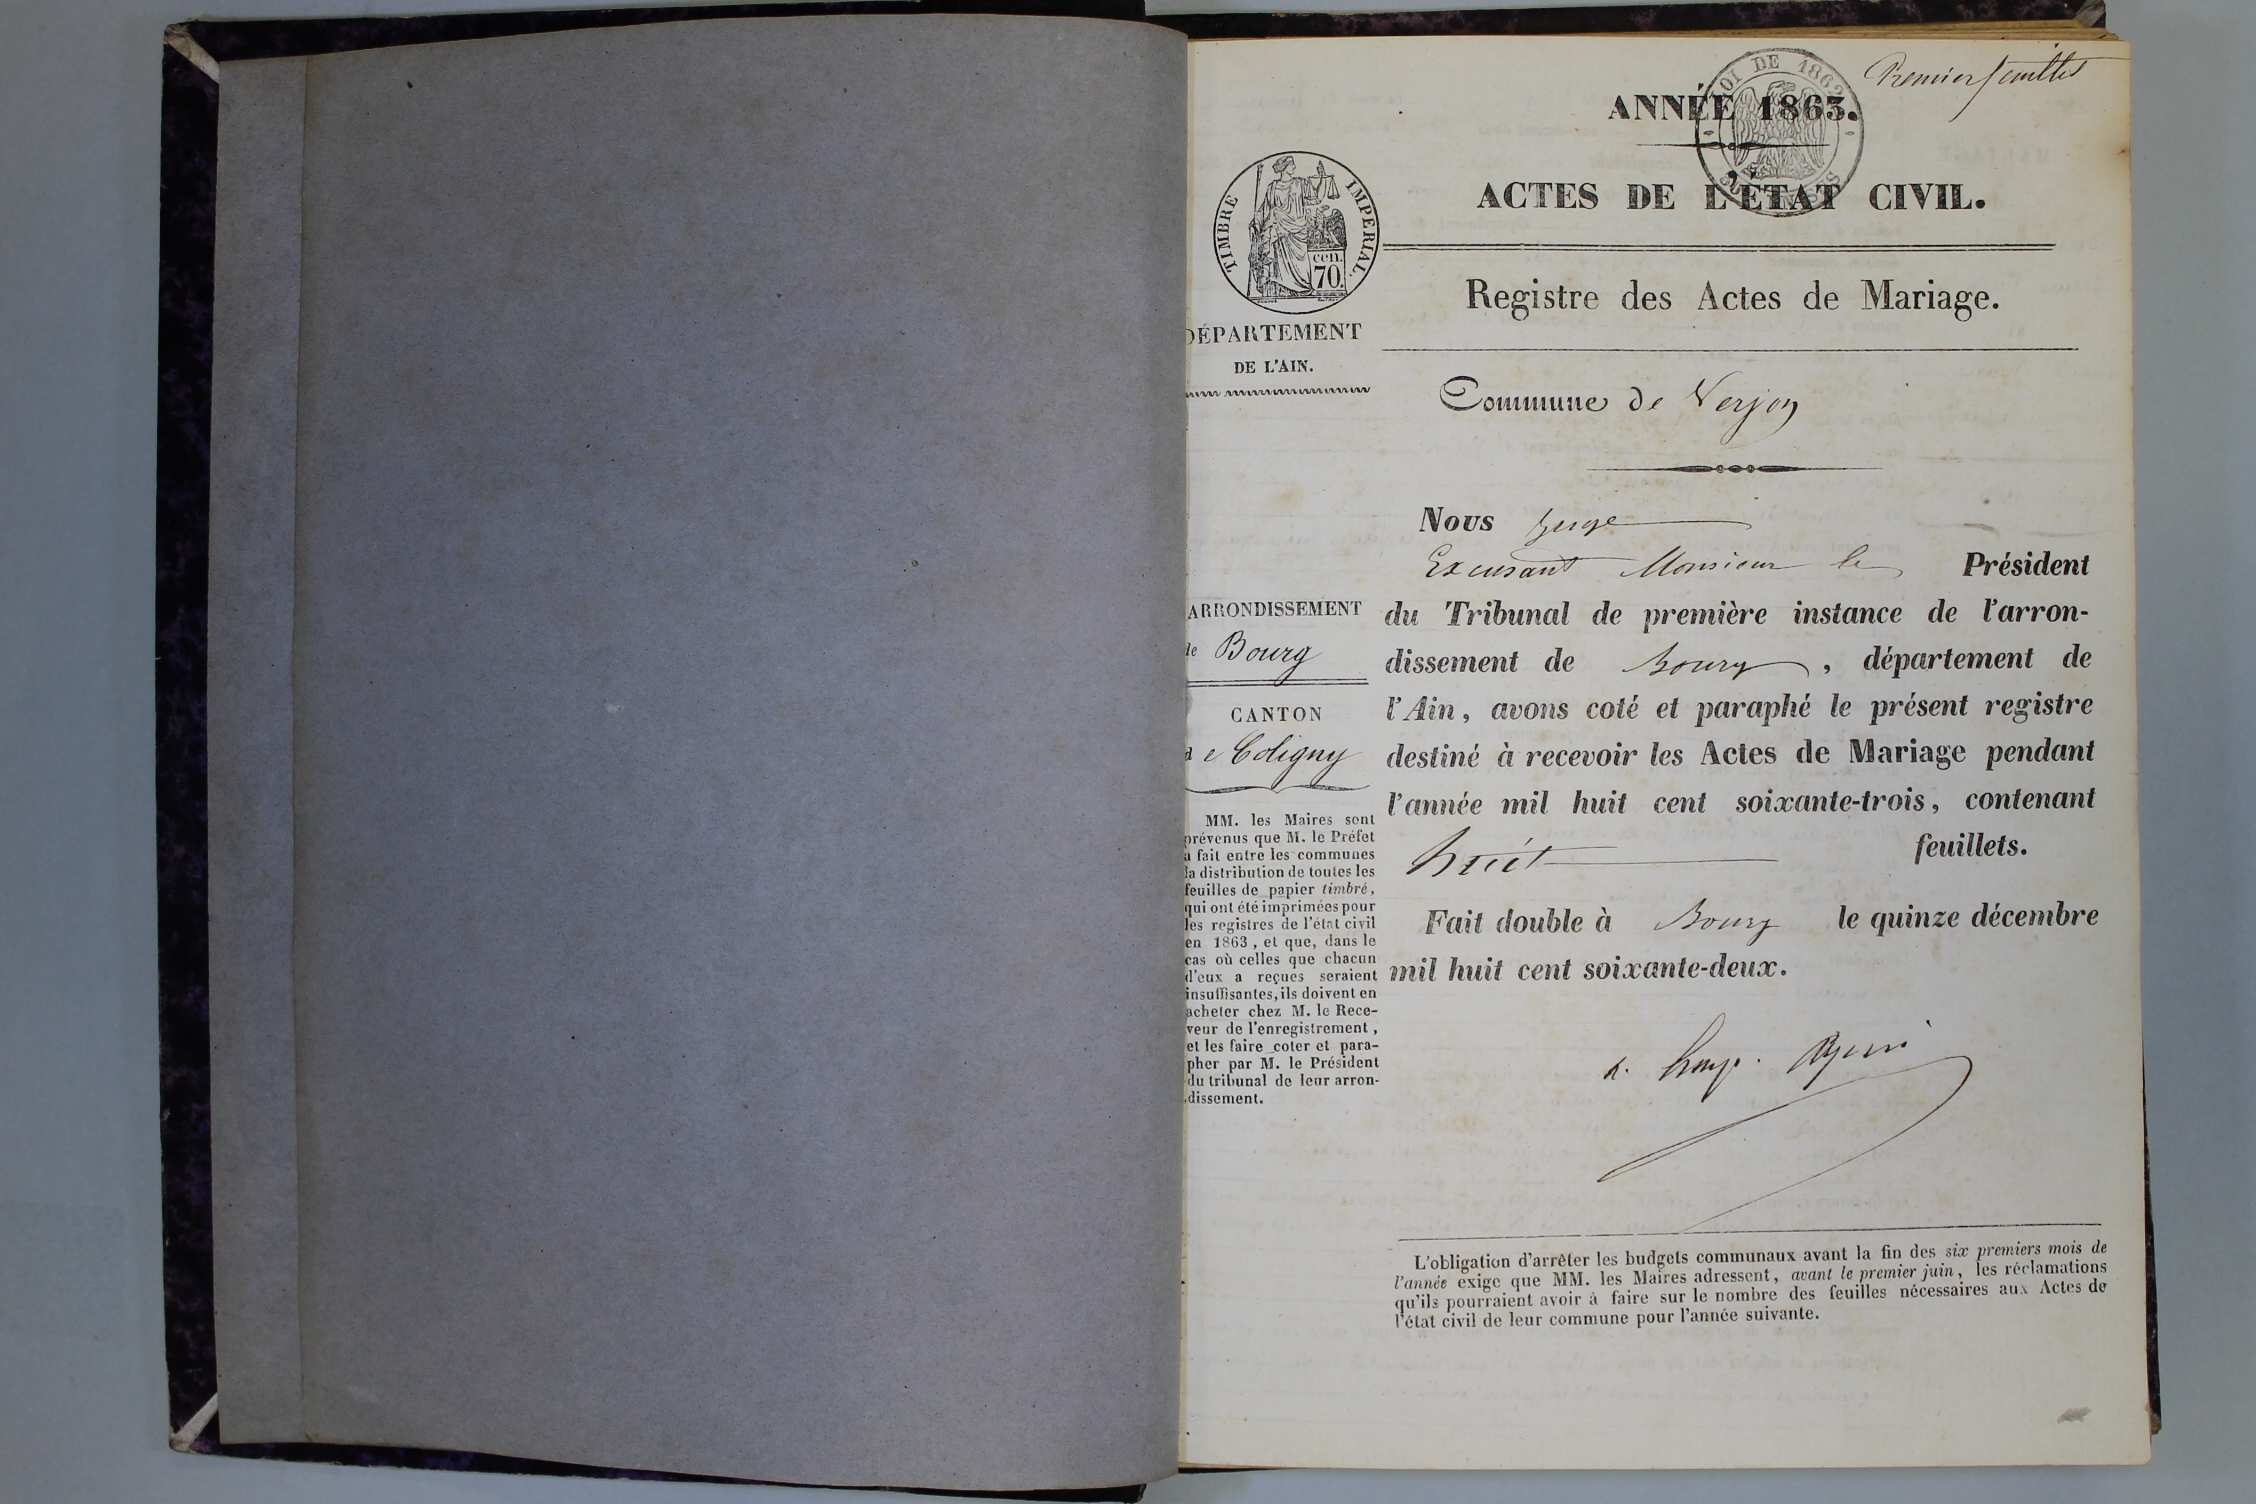 Premier feuillet
LOI DE 1862
ANNÉE 1863.
ACTES DE L'ÉTAT CIVIL.
TIMBRE IMPERIAL.
cen.
70.
Registre des Actes de Mariage.
DÉPARTEMENT
DE L'AIN.
Commune de Verjon
ARRONDISSEMENT
de Bourg
CANTON
de Coligny
MM. les Maires sont
prévenus que M. le Préfet
a fait entre les communes
la distribution de toutes les
feuilles de papier timbré,
qui ont été imprimées pour
les registres de l'état civil
en 1863, et que, dans le
cas où celles que chacun
d'eux a reçues seraient
insuffisantes, ils doivent en
acheter chez M. le Rece-
veur de l'enregistrement,
et les faire coter et para-
pher par M. le Président
du tribunal de leur arron-
dissement.
Nous Juge
Excusant Monsieur le Président
du Tribunal de première instance de l'arron-
dissement de Bourg, département de
l'Ain, avons coté et paraphé le présent registre
destiné à recevoir les Actes de Mariage pendant
l'année mil huit cent soixante-trois, contenant
huit feuillets.
Fait double à Bourg le quinze décembre
mil huit cent soixante-deux.
L'obligation d'arrêter les budgets communaux avant la fin des six premiers mois de
l'année exige que MM. les Maires adressent, avant le premier juin, les réclamations
qu'ils pourraient avoir à faire sur le nombre des feuilles nécessaires aux Actes de
l'état civil de leur commune pour l'année suivante.